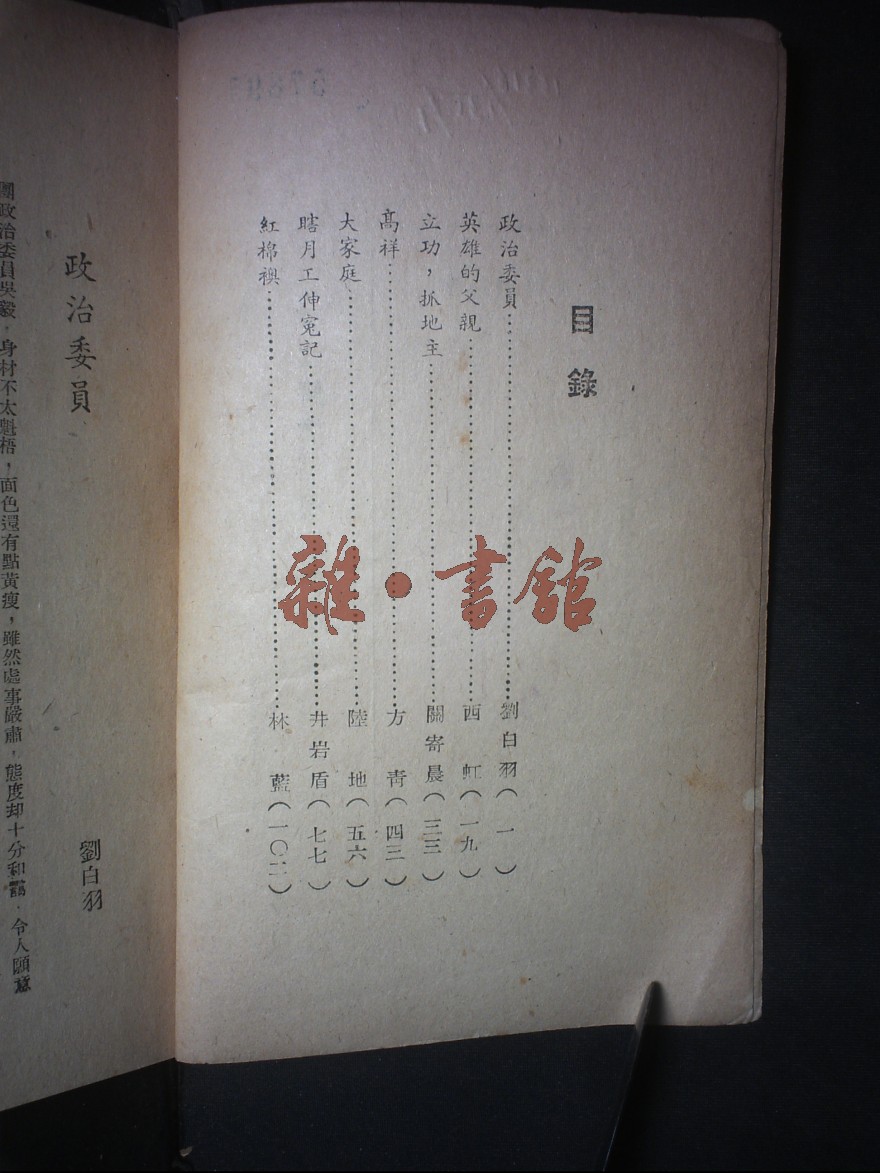 目錄
政治委員……劉白羽（一）
英雄的父親……西虹（一九）
立功，抓地主……關寄晨（三三）
高祥……方青（四三）
大家庭……陸地（五六）
瞎月工伸冤記……井岩盾（七七）
紅棉襖……林藍（一〇二）
雜·書館
政治委員
劉白羽
團政治委員吳毅，身材不太魁梧，面色還有點黃瘦，雖然處事嚴肅，態度却十分和藹，令人願意